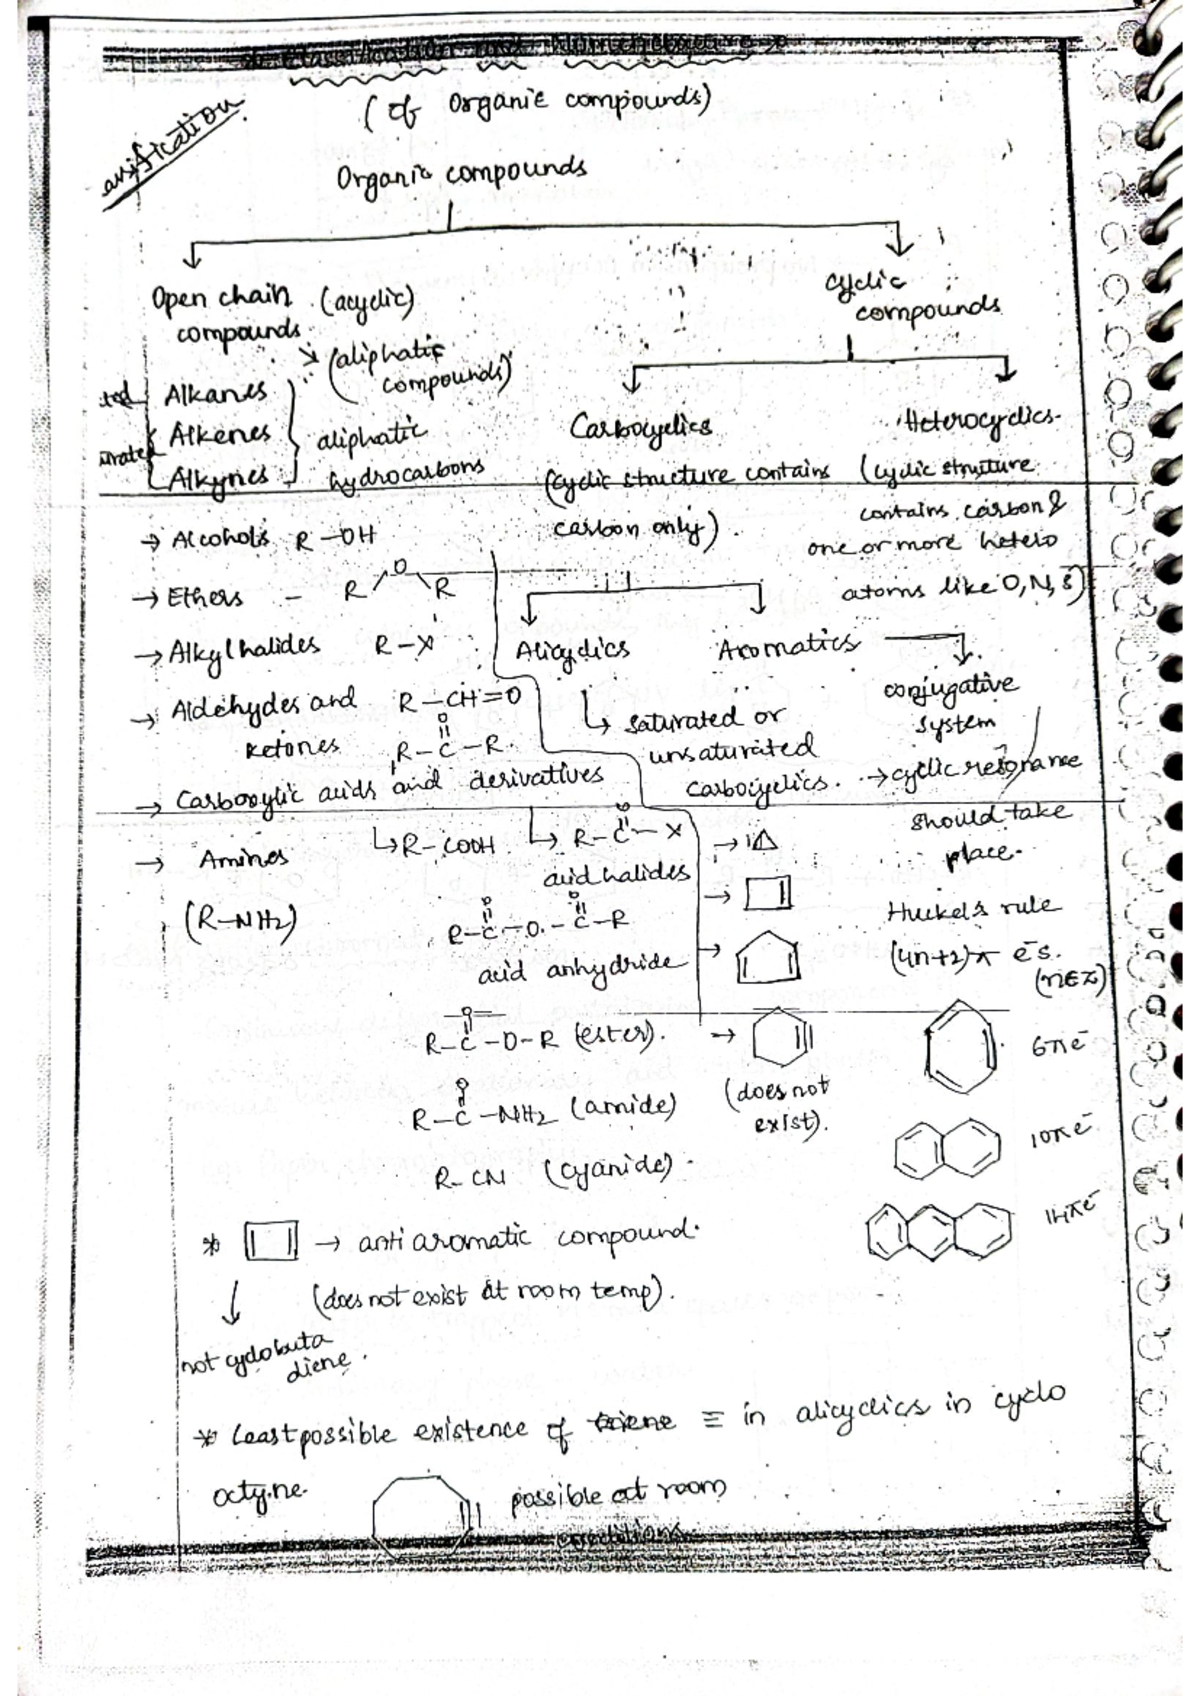 * Classification and Nomenclature *
(of organic compounds)
assification
Organic compounds
Open chain (acyclic)
compounds
(aliphatic
compounds)
cyclic
compounds
Alkanes
Alkenes
Alkynes
aliphatic
hydrocarbons
Carbocyclics
(cyclic structure contains
carbon only).
Heterocyclics
(cyclic structure
contains carbon &
one or more hetero
atoms like O, N, S)
→ Alcohols R-OH
→ Ethers - R O R
→ Alkyl halides R-X
→ Aldehydes and R-CH=O
ketones R-C-R
O
→ Carboxylic acids and derivatives
↳ R-COOH ↳ R-C-X
O
acid halides
→ Amines
(R-NH2)
O O
R-C-O-C-R
acid anhydride
O
R-C-O-R (ester).
O
R-C-NH2 (amide)
R-CN (cyanide).
Alicyclics
↳ saturated or
unsaturated
carbocyclics.
(does not
exist).
Aromatics
conjugative
system
→ cyclic resonance
should take
place.
Huckel's rule
(4n+2)π e-s.
(n∈Z)
6πe-
10πe-
14πe-
* → anti aromatic compound.
(does not exist at room temp).
↓
not cyclobuta
diene.
* Least possible existence of ≡ in alicyclics in cyclo
octyne.
possible at room
conditions